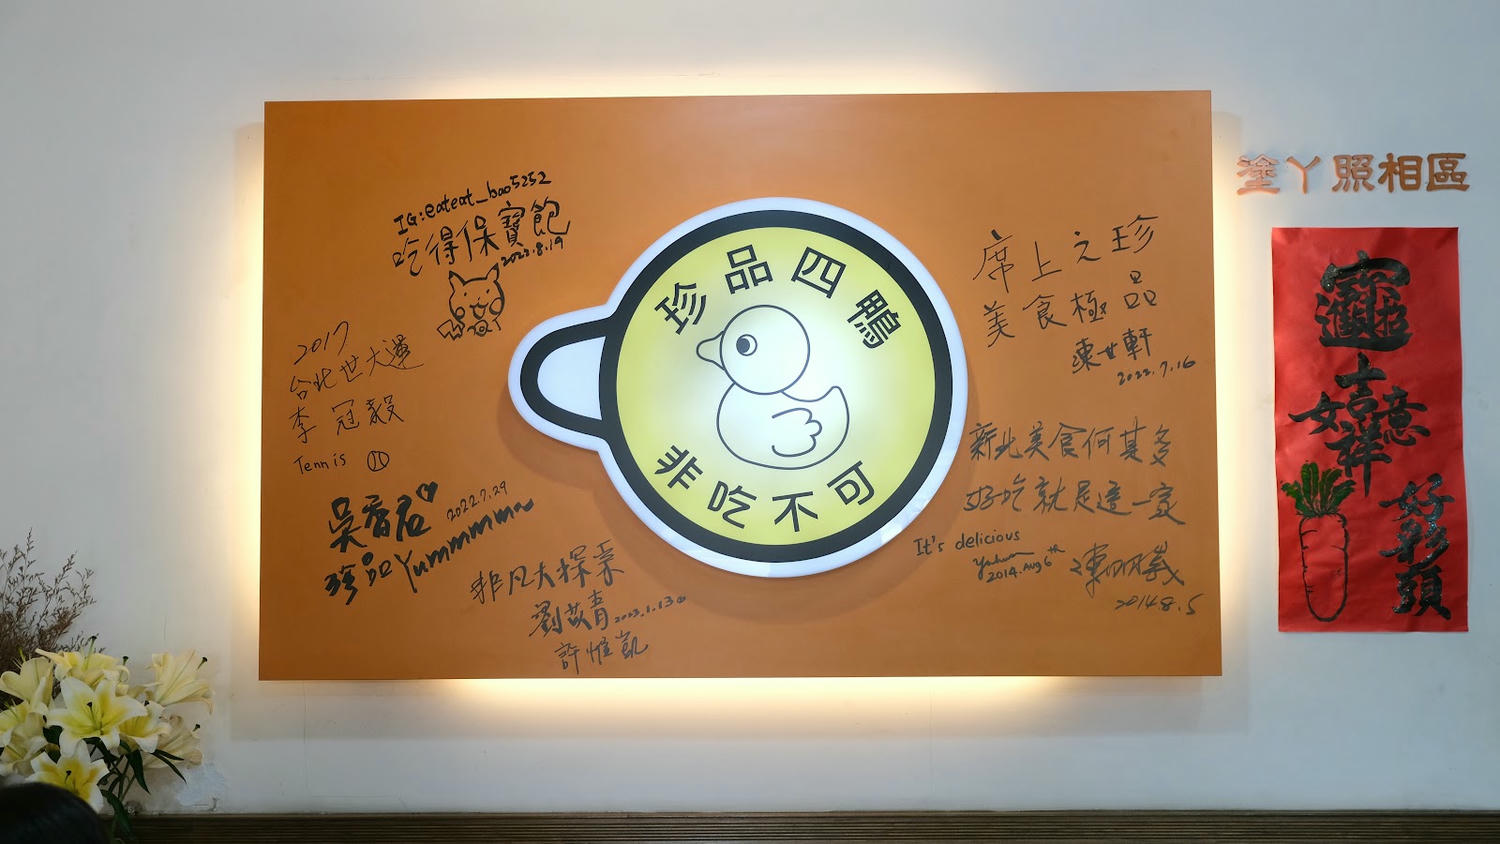 珍品四鴨
非吃不可
IG:eateat_bao5252
吃得保寶飽
2022.8.19
2017
台北世大運
李冠毅
Tennis
吳香君
2022.7.29
珍品Yummmmm
非凡大探索
劉苡青 2023.1.13
許惟凱
席上之珍
美食極品
2022.7.16
新北美食何其多
好吃就是這一家
It's delicious
2014.Aug 6th
2014.8.5
塗丫照相區
吉祥
如意
好彩頭